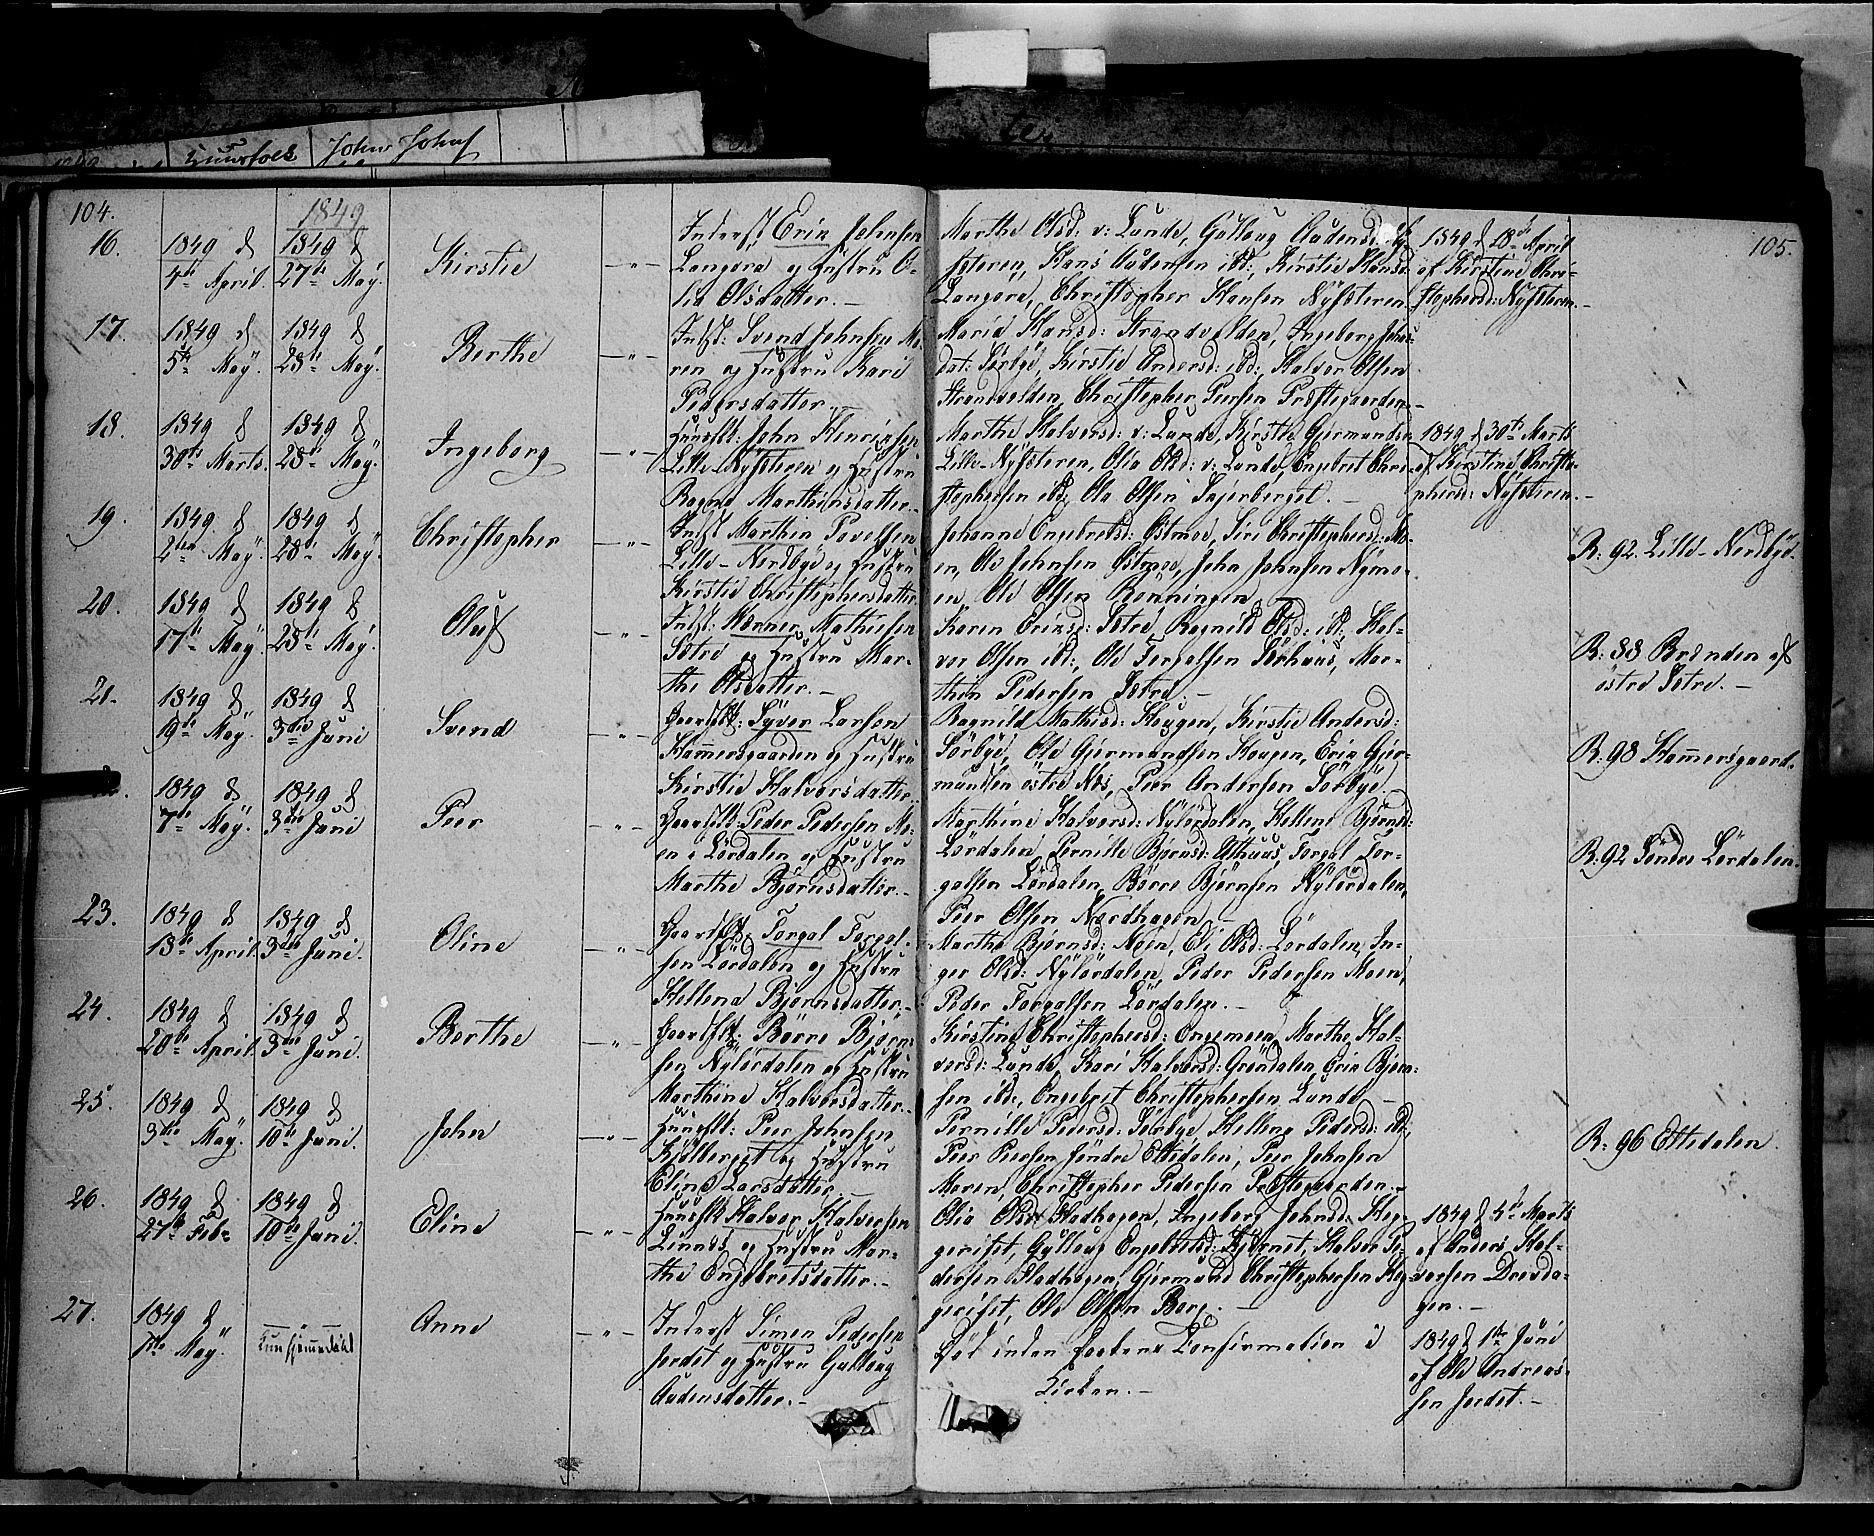 Huusfolk John Johns
104.
1849
105.
16.
1849 d
4de April.
1849 d
27de May.
Kirstie
— " —
Inderst Erik Johnsen
Langøra og Hustru O-
lia Olsdatter. —
Marthe Olsd: v: Lunde, Gulloug Audensd:
Hans Audensen ibd:, Kirstie Hansd:
Langøra, Christopher Hansen Nysæteren
1849 d 18de April
af Kirstine Chri-
stophersd: Nysæteren
17.
1849 d
5te May.
1849 d
28de May.
Berthe
— " —
Indst: Svend Johnsen Mo-
ren og Hustru Kari
Pedersdatter.
Marie Hansd: Strandvolden, Ingeborg Johns-
dat: Sørbye, Kirstie Andersd: ibd:, Halvor Olsen
Strandvolden, Christopher Peersen Præstegaarden —
18.
1849 d
30te Marts.
1849 d
28de May.
Ingeborg
— " —
Huusflk: John Henriksen
Lille-Nysæteren og Hustru
Ragne Marthinsdatter.
Marthe Halvorsd: v: Lunde, Kirstie Gjermundsd
Lille-Nysæteren, Olia Olsd: v: Lunde, Engebret Chri-
stophersen ibd, Ole Olsen Sejerberget. —
1849 d 30te Marts
af Kirstine Christo-
phersd: Nysæteren. —
19.
1849 d
2den May.
1849 d
28de May.
Christopher
— " —
Indst Marthin Povelsen
Lille-Nordbye og Hustru
Kirstie Christophersdatter
Johanne Engebretsd: Østmoe, Siri Christophersd: Mo-
en, Ole Johnsen Østmoe, John Johnsen Nymo-
en, Ole Olsen Rønningen
R: 92. Lille-Nordbye.
20.
1849 d
17de May.
1849 d
28de May.
Oluf
— " —
Indst: Werner Mathisen
Sætre og Hustru Mar-
the Olsdatter. —
Karen Eriksd: Sætre, Ragnild Olsd: ibd:, Hal-
vor Olsen ibd:, Ole Torgalsen Sørhuus, Mar-
thin Pedersen Sætre. —
R: 88 Brænden af
østre Sætre. —
21.
1849 d
19de May.
1849 d
3die Juni
Svend
— " —
Gaardflk: Syver Larsen
Hammersgaarden og Hustru
Kirstie Halvorsdatter.
Ragnild Mathisd: Haugen, Kirstie Andersd:
Sørbye, Ole Gjermundsen Haugen, Erik Gjer-
mundsen østre Næs, Peer Andersen Sørbye.
R: 98 Hammersgaard.
1849 d
7de May.
1849 d
3die Juni
Peer
— " —
Gaardflk: Peder Pedersen Mo-
en i Lørdalen og Hustru
Marthe Bjørnsdatter. —
Marthine Halvorsd: Nylørdalen, Hellene Bjørnsd:
Lørdalen, Pernille Bjørnsd: Uthuus, Torgal Tor-
galsen Lørdalen, Børre Bjørnsen Nylørdalen,
Peer Olsen Nordhagen —
R: 92 Søndre Lørdalen.
23.
1849 d
13de April.
1849 d
3die Juni.
Oline
— " —
Gaardflk: Torgal Torgal-
sen Lørdalen og Hustru
Hellene Bjørnsdatter. —
Marthe Bjørnsd: Moen, Eli Olsd: Lørdalen, In-
ger Olsd: Nylørdalen, Peder Pedersen Moen,
Peder Torgalsen Lørdalen. —
24.
1849 d
20de April.
1849 d
3die Juni.
Berthe
— " —
Gaardflk: Børre Bjørn-
sen Nylørdalen og Hustru
Marthine Halvorsdatter.
Kirstine Christophersd: Engemoen, Marthe Hal-
vorsd: Lunde, Kari Halvorsd: Grøndalen, Erik Bjørn-
sen ibd:, Engebret Christophersen Lunde —
25.
1849 d
3die May.
1849 d
10de Juni.
John
— " —
Huusflk: Peer Johnsen
Kjølberget og Hustru
Eline Larsdatter
Pernille Pedersd: Sørbye, Hellene Pedersd: ibd,
Peer Peersen søndre Ettedalen, Peer Johnsen
Moren, Christopher Pedersen Præstegaarden. —
R: 96 Ettedalen
26.
1849 d
27de Feb:
1849 d
10de Juni.
Eline
— " —
Huusflk Halvor Halvorsen
Linnes og Hustru Mar-
the Engebretsdatter. —
Olia Olsd: Stadhagen, Ingeborg Johnsd: Heg-
geriset, Gulloug Engebretsd: Kjernet, Halvor Pe-
dersen Stadhagen, Gjermund Christophersen Heg-
geriset, Ole Olsen Berg. —
1849 d 4de Marts
af Anders Hal-
vorsen Drevda-
gen. —
27.
1849 d
1ste May.
— " —
Kun hjemmedøbt
Anne
— " —
Inderst Simen Pedersen
Jordet og Hustru Gulloug
Audensdatter. —
Død inden Daabens Confirmation i
Kirken. —
1849 d 1ste Juni
af Ole Andreas-
sen Jordet. —